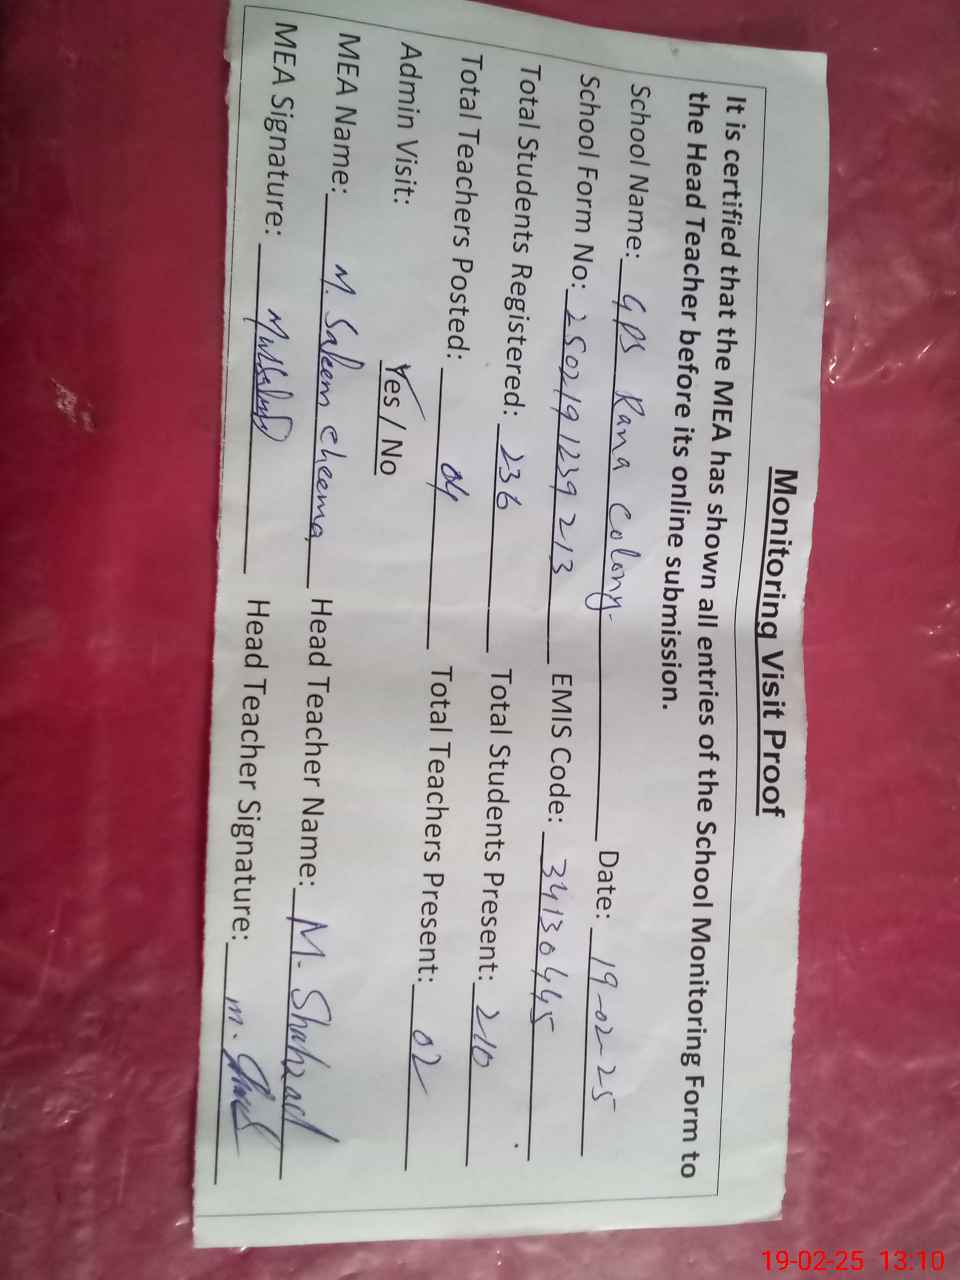 Monitoring Visit Proof
It is certified that the MEA has shown all entries of the School Monitoring Form to
the Head Teacher before its online submission.
School Name: GPS Rana Colony. Date: 19-02-25
School Form No: 2502191239213 EMIS Code: 34130445
Total Students Registered: 236 Total Students Present: 210
Total Teachers Posted: 04 Total Teachers Present: 02
Admin Visit: Yes / No
MEA Name: M. Saleem Cheema Head Teacher Name: M. Shahzad
MEA Signature: Head Teacher Signature: M.
19-02-25 13:10